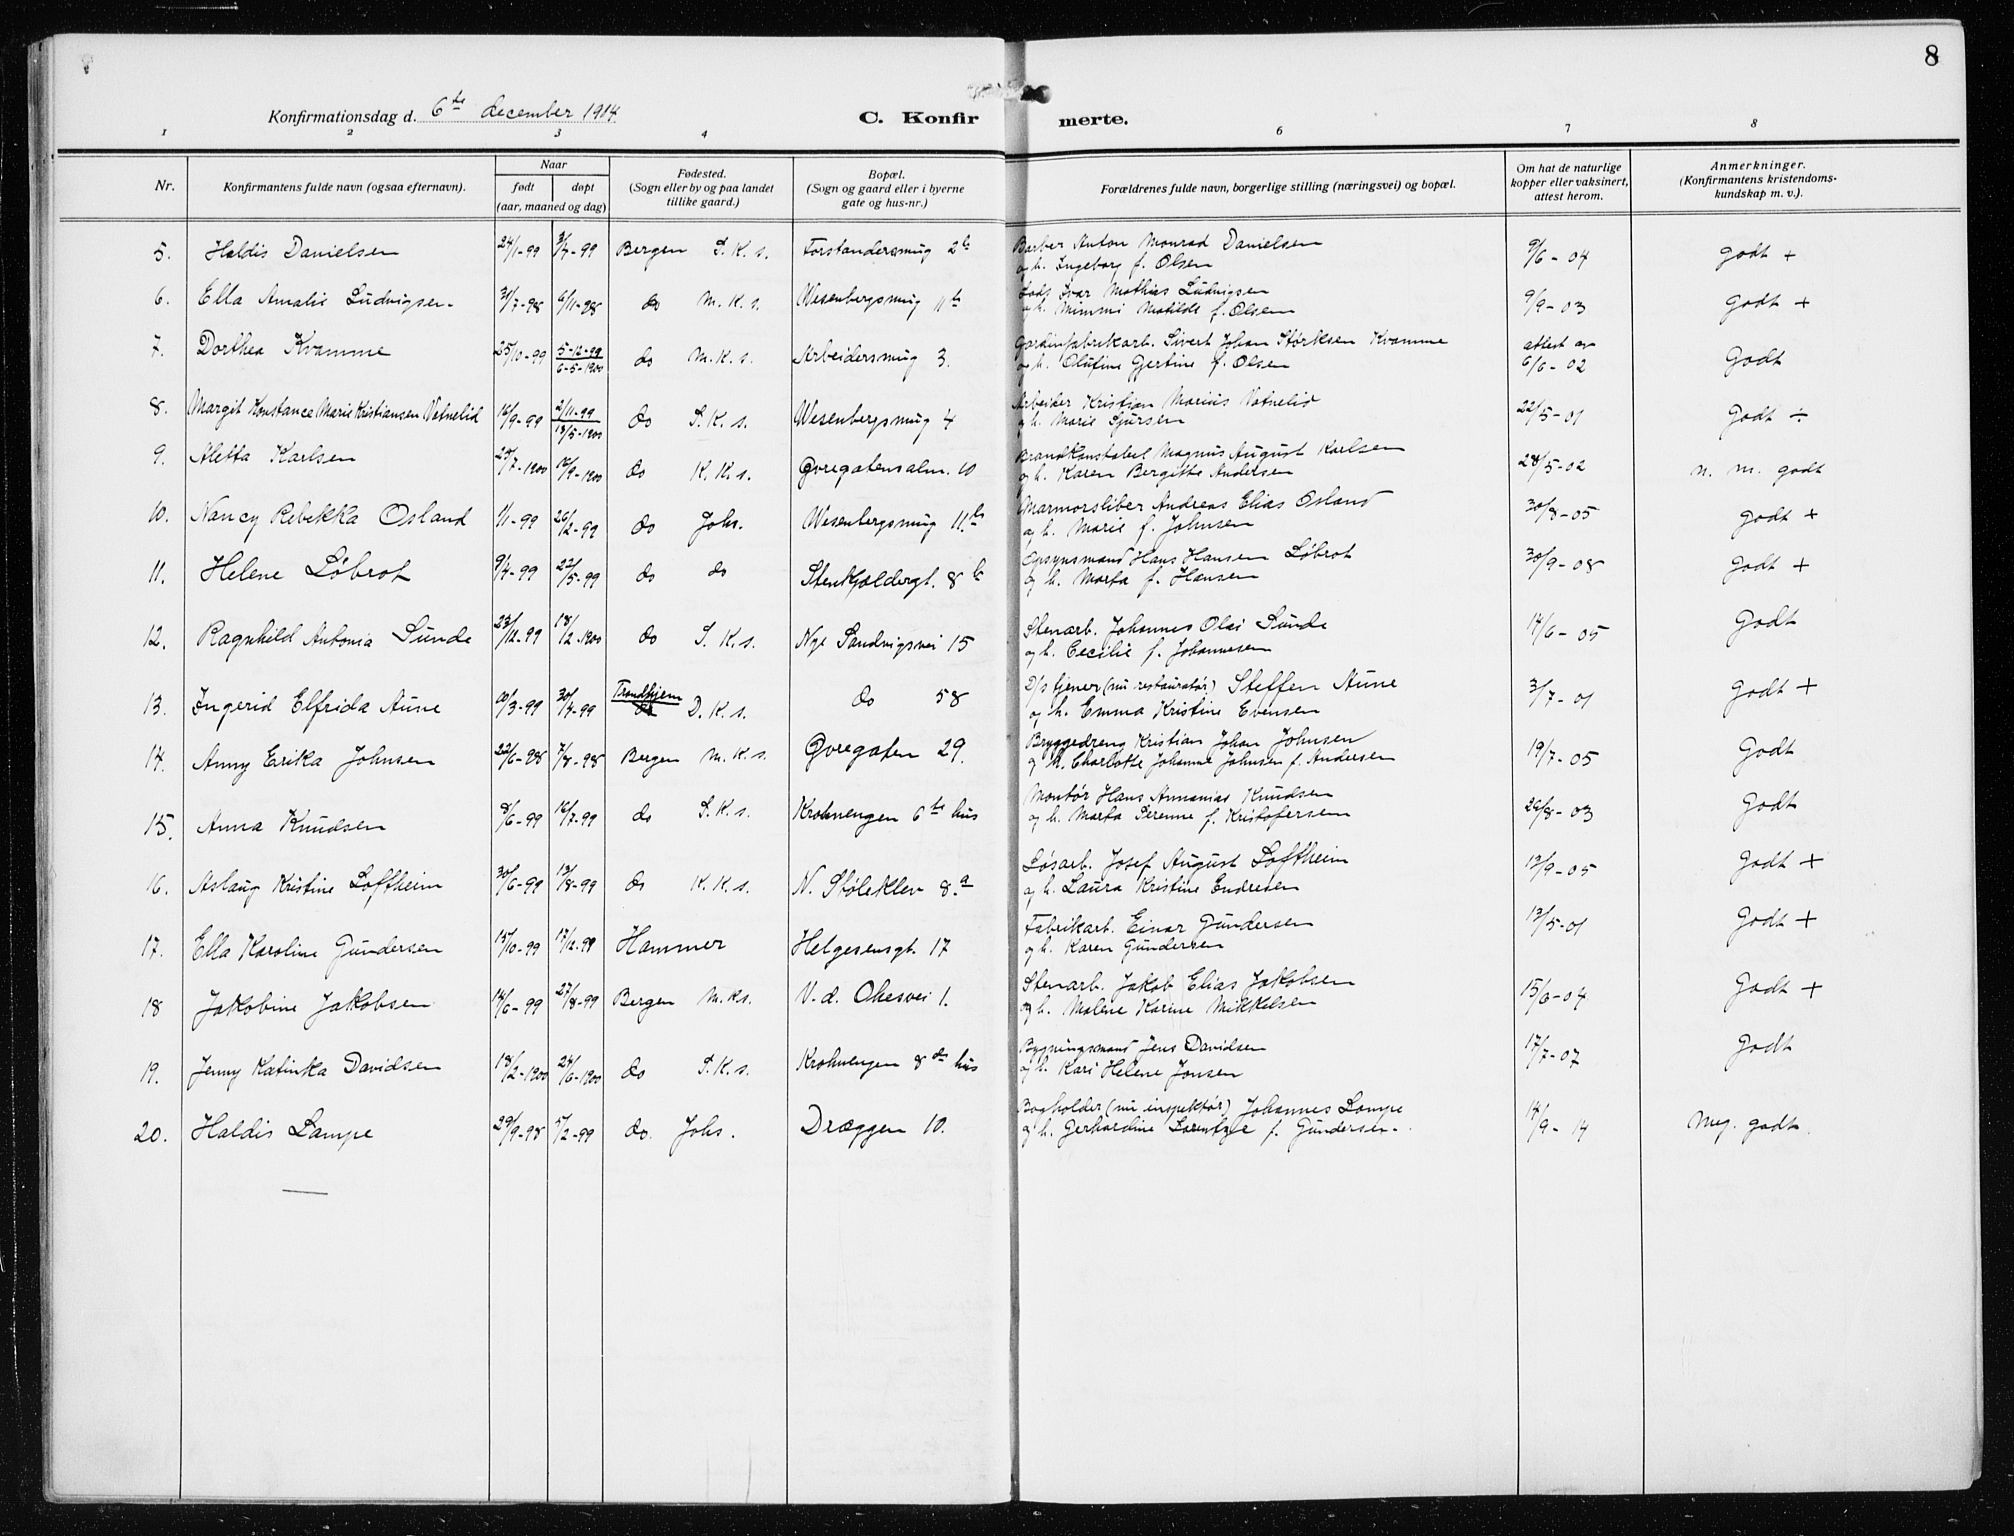 8
Konfirmationsdag d. 6te december 1914
C. Konfirmerte.
1 2 3 4 6 7 8
Nr. Konfirmantens fulde navn (ogsaa efternavn). Naar født døpt (aar, maaned og dag) Fødested. (Sogn eller by og paa landet tillike gaard.) Bopæl. (Sogn og gaard eller i byerne gate og hus-nr.) Forældrenes fulde navn, borgerlige stilling (næringsvei) og bopæl. Om hat de naturlige kopper eller vaksinert, attest herom. Anmerkninger. (Konfirmantens kristendomskundskap m. v.).
5. Haldis Danielsen 24/1-99 3/4-99 Bergen S. K. s. Forstandersmug 2b Barber Anton Monrad Danielsen 9/6-04 Godt +
og h. Ingeborg f. Olsen
6. Ella Amalie Ludvigsen 31/7-98 6/11-98 do M. K. s. Wesenbergsmug 11b Lods Ivar Mathias Ludvigsen 9/9-03 Godt +
og h. Mimmi Matilde f. Olsen
7. Dorthea Kvamme 25/10-99 5-12-99 do M. K. s. Arbeidersmug 3. Gardinfabrikarb. Sivert Johan Størksen Kvamme attest av Godt
6-5-1900 og h. Olufine Gjertine f. Olsen 6/6-02
8. Margit Konstance Marie Kristiansen Vatnelid 16/9-99 2/11-99 do S. K. s. Wesenbergsmug 4 Arbeider Kristian Marius Vatnelid 22/5-01 Godt ÷
13/5-1900 og h. Marie Sjursen
9. Aletta Karlsen 25/7-1900 16/9-1900 do K. K. s. Øvregatensalm. 10 Brandkonstabel Magnus August Karlsen 28/5-02 n. m. godt
og h. Karen Bergitte Andersen
10. Nancy Rebekka Osland 1/1-99 26/2-99 do Johs. Wesenbergsmug 11b Marmorsliber Andreas Elias Osland 30/8-05 Godt +
og h. Marie f. Johnsen
11. Helene Løbrot 9/4-99 22/5-99 do do Stenkjeldergt. 8b Opsynsmand Hans Hansen Løbrot 30/9-08 Godt +
og h. Marta f. Hansen
12. Ragnhild Antonia Sunde 23/12-99 18/2-1900 do S. K. s. Nye Sandvigsvei 15 Stenarb. Johannes Olai Sunde 14/6-05 Godt
og h. Cecilie f. Johannesen
13. Ingerid Elfrida Aune 20/3-99 30/4-99 Trondhjem D. K. s. do 58 D/s tjener (nu restauratør) Steffen Aune 3/7-01 Godt +
do og h. Emma Kristine Evensen
14. Anny Erika Johnsen 22/6-98 7/8-98 Bergen M. K. s. Øvregaten 29. Bryggedreng Kristian Johan Johnsen 19/7-05 Godt
og h. Charlotte Johanne Johnsen f. Andersen
15. Anna Knudsen 8/6-99 16/7-99 do S. K. s. Krohnengen 6te hus Montør Hans Annanias Knudsen 26/8-03 Godt
og h. Marta Serenne f. Kristofersen
16. Aslaug Kristine Loftheim 30/6-99 13/8-99 do K. K. s. N. Støleklev 8a Løsarb. Josef August Loftheim 13/9-05 Godt +
og h. Laura Kristine Endresen
17. Ella Karoline Gundersen 15/10-99 17/12-99 Hammer Helgesensgt. 17 Fabrikarb. Einar Gundersen 13/5-01 Godt +
og h. Karen Gundersen
18 Jakobine Jakobsen 14/6-99 27/8-99 Bergen M. Ks. V. d. Ohesvei 1. Stenarb. Jakob Elias Jakobsen 15/6-04 Godt +
og h. Malene Karine Mikkelsen
19. Jenny Katinka Davidsen 18/2-1900 24/6-1900 do S. K. s. Krohnengen 8de hus Bygningsmand Jens Davidsen 17/7-07 Godt
og h. Kari Helene Jonsen
20. Haldis Lampe 29/9-98 5/2-99 do. Johs. Dræggen 10. Bogholder (nu inspektør) Johannes Lampe 14/9-14 Meg. godt
og h. Gerhardine Lorentze f. Gundersen